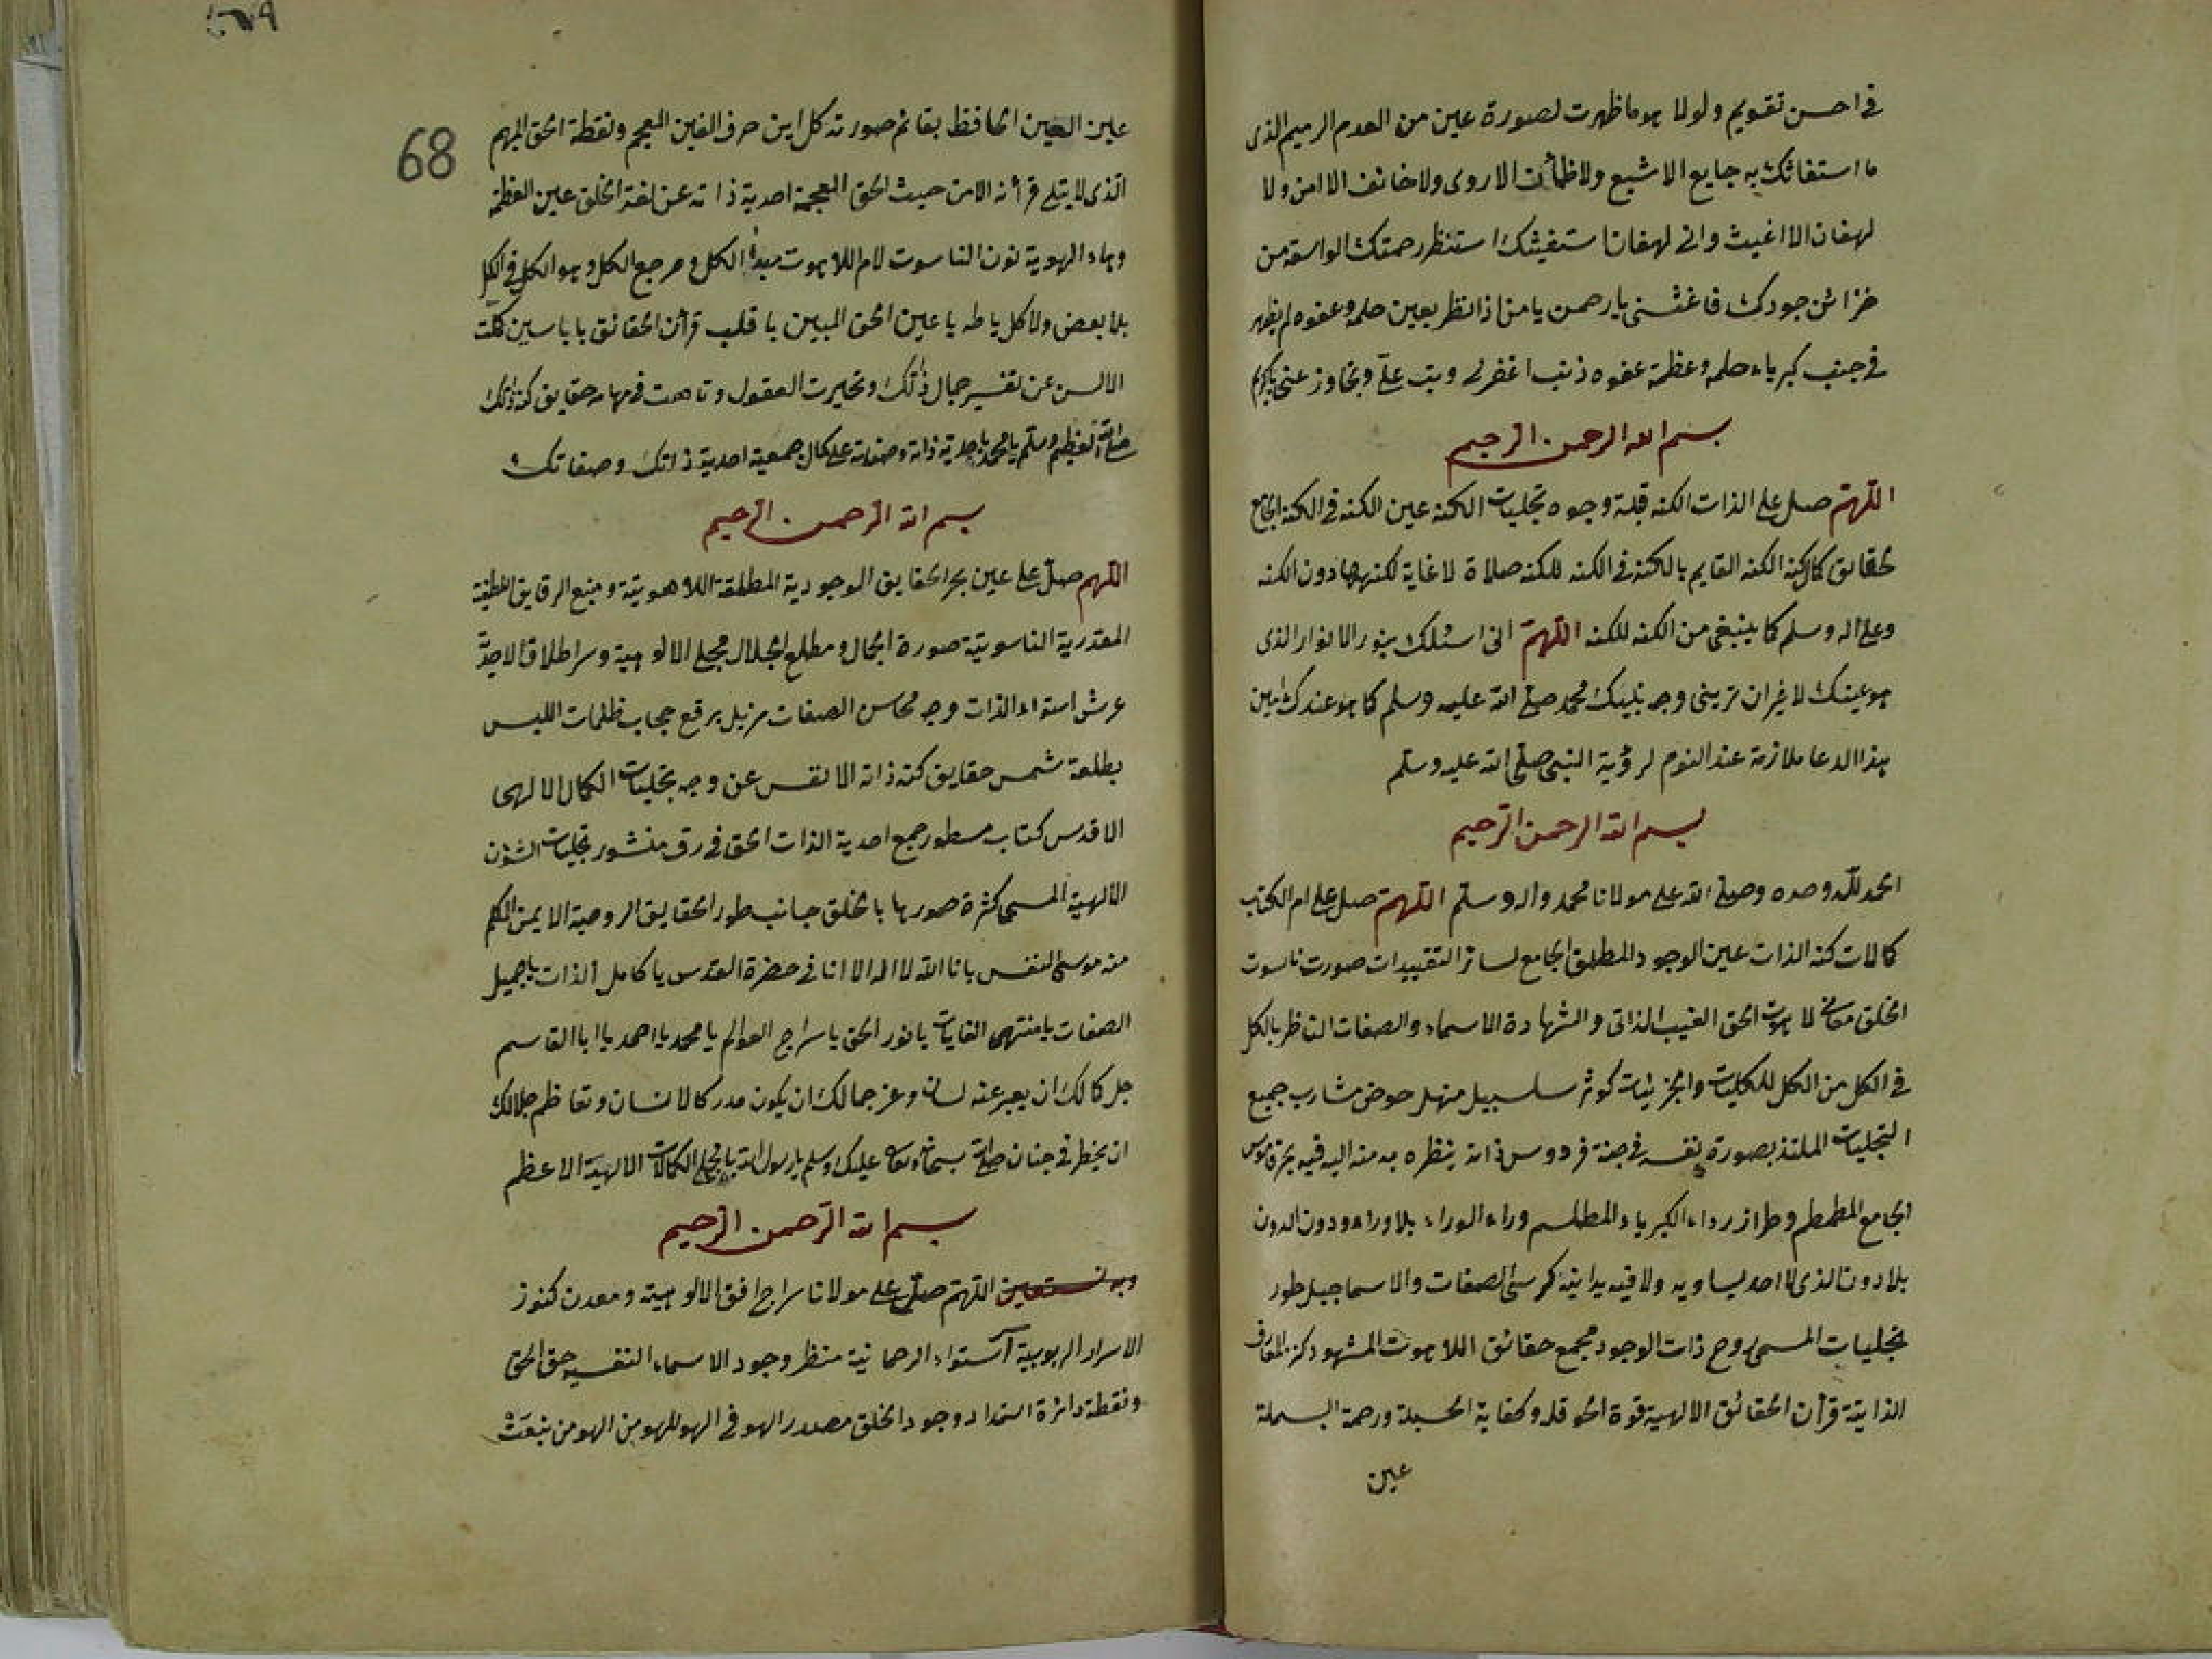 في احسن تقويم ولولا هو ما ظهرت لصورة عين من العدم الرميم الذى
ما استغاثك به جايع الا شبع ولا ظمآن الا روى ولا خائف الا امن ولا
لهفان الا اغيث وانى لهفان استغيثك استنظر رحمتك الواسعة من
خزائن جودك فاغثنى يا رحمن يا من اذا نظر بعين حلمه وعفوه لم يظهر
في جنب كبرياء حلمه وعظمة عفوه ذنب اغفر لى وتب علىّ وتجاوز عنى يا كريم
بسم الله الرحمن الرحيم
اللهم صل على الذات الكنه قبلة وجوه تجليات الكنه عين الكنه في الكنه الجامع
لحقائق كمال كنه الكنه القايم بالكنه في الكنه للكنه صلاة لا غاية لكنهها دون الكنه
وعلى اله وسلم كما ينبغى من الكنه للكنه اللهم انى اسئلك بنور الانوار الذى
هو عينك لا غير ان ترينى وجه نبيك محمد صلى الله عليه وسلم كما هو عندك امين
هذا الدعا ملازمة عند النوم لرؤية النبى صلى الله عليه وسلم
بسم الله الرحمن الرحيم
الحمد لله وحده وصلى الله على مولانا محمد واله وسلم اللهم صل على ام الكتاب
كمالات كنه الذات عين الوجود المطلق الجامع لسائر التقييدات صورت ناسوت
الخلق معانى لاهوت الحق الغيب الذاتى والشهادة الاسماء والصفات الناظر بالكل
في الكل من الكل للكليات والجزئيات كوثر سلسبيل منهل حوض مشارب جميع
التجليات الملتذ بصورة نفسه في جنة فردوس ذاته ينظره به منه اليه فيه بحر قاموس
الجامع المطمطم وطراز رداء الكبرياء المطلسم وراء الوراء بلا وراء ودون الدون
بلا دون الذى لا احد يساويه ولا فيه يدانيه كرسى الصفات والاسما جبل طور
تجليات المسمى روح ذات الوجود مجمع حقائق اللاهوت المشهود كنز المعارف
الذاتية قرآن الحقائق الالهية قوة الحوقلة وكفاية الحسبلة ورحمة البسملة
عين
68
عين العين الحافظ بقائم صورته كل اين حرف الغين المعجم ونقطة الحق المبهم
الذى لا يتلى قرآنه الا من حيث الحق المعجمة احدية ذاته عن لغة الخلق عين العظمة
وهاء الهوية نون الناسوت لام اللاهوت مبدأ الكل ومرجع الكل وهو الكل في الكل
بلا بعض ولا كل يا طه يا عين الحق المبين يا قلب قرآن الحقائق يا ياسين كلّت
الالسن عن تفسير جمال ذلك وتحيرت العقول وتاهت في مهامه حقايق كنه ذلك
صلى الله العظيم وسلم يا محمد باحدية ذاته وصفاته على كمال جمعية احدية ذاتك وصفاتك
بسم الله الرحمن الرحيم
اللهم صلّ على عين بحر الحقايق الوجودية المطلقة اللاهوتية ومنبع الرقايق اللطيفة
المقدرية الناسوتية صورة الجمال ومطلع الجلال مجلى الالوهية وسر اطلاق الاحدية
عرش استواء الذات وجه محاسن الصفات مزيل برقع حجاب ظلمات اللبس
بطلعة شمس حقايق كنه ذاته الانفس عن وجه تجليات الكمال الالهى
الاقدس كتاب مسطور جمع احدية الذات الحق في رق منشور تجليات الشؤن
الالهية المسمى كثرة صورها بالخلق جانب طور الحقايق الروحية الايمن المكلم
منه موسى النفس بانا الله لا اله الا انا في حضرة القدس يا كامل الذات يا جميل
الصفات يا منتهى الغايات يا نور الحق يا سراج العوالم يا محمد يا احمد يا ابا القاسم
جل كمالك ان يعبر عنه لسان وعز جمالك ان يكون مدركا لانسان وتعاظم جلالك
ان يخطر في جنان صلى الله سبحانه وتعالى عليك وسلم يا رسول الله يا مجلى الكمالات الالهية الاعظم
بسم الله الرحمن الرحيم
وبه نستعين اللهم صل على مولانا سراج افق الالوهية ومعدن كنوز
الاسرار الربوبية استواء الرحمانية منظر وجود الاسماء النفسية حق الحق
ونقطة دائرة استمداد وجود الخلق مصدر الهو في الهو للهو من الهو من